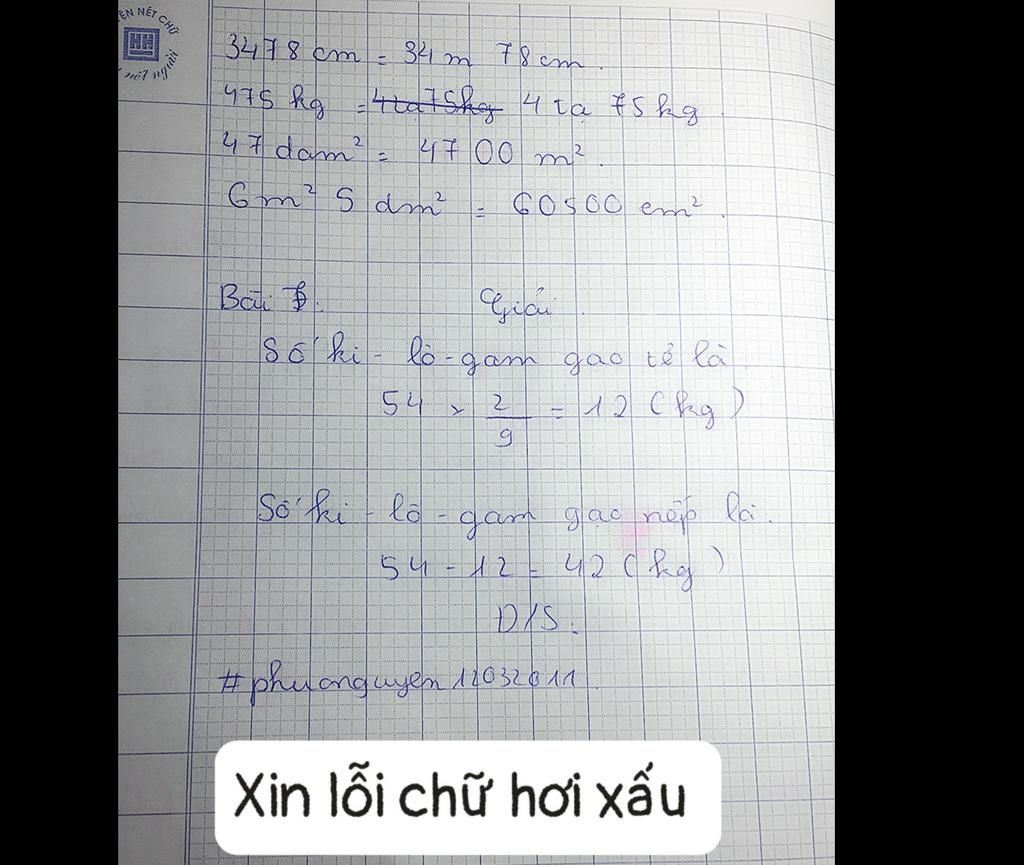 ÊN NÉT CHỮ
HH
nết người
3478 cm = 34 m 78 cm.
475 kg = 4 tạ 75kg 4 tạ 75 kg
47 dam² = 4700 m².
6 m² 5 dm² = 60500 cm².
Bài 5. Giải
Số ki - lô - gam gạo tẻ là
54 × 2/9 = 12 (kg)
Số ki - lô - gam gạo nếp là.
54 - 12 = 42 (kg)
Đ/S:
#phuonguyen12032011
Xin lỗi chữ hơi xấu